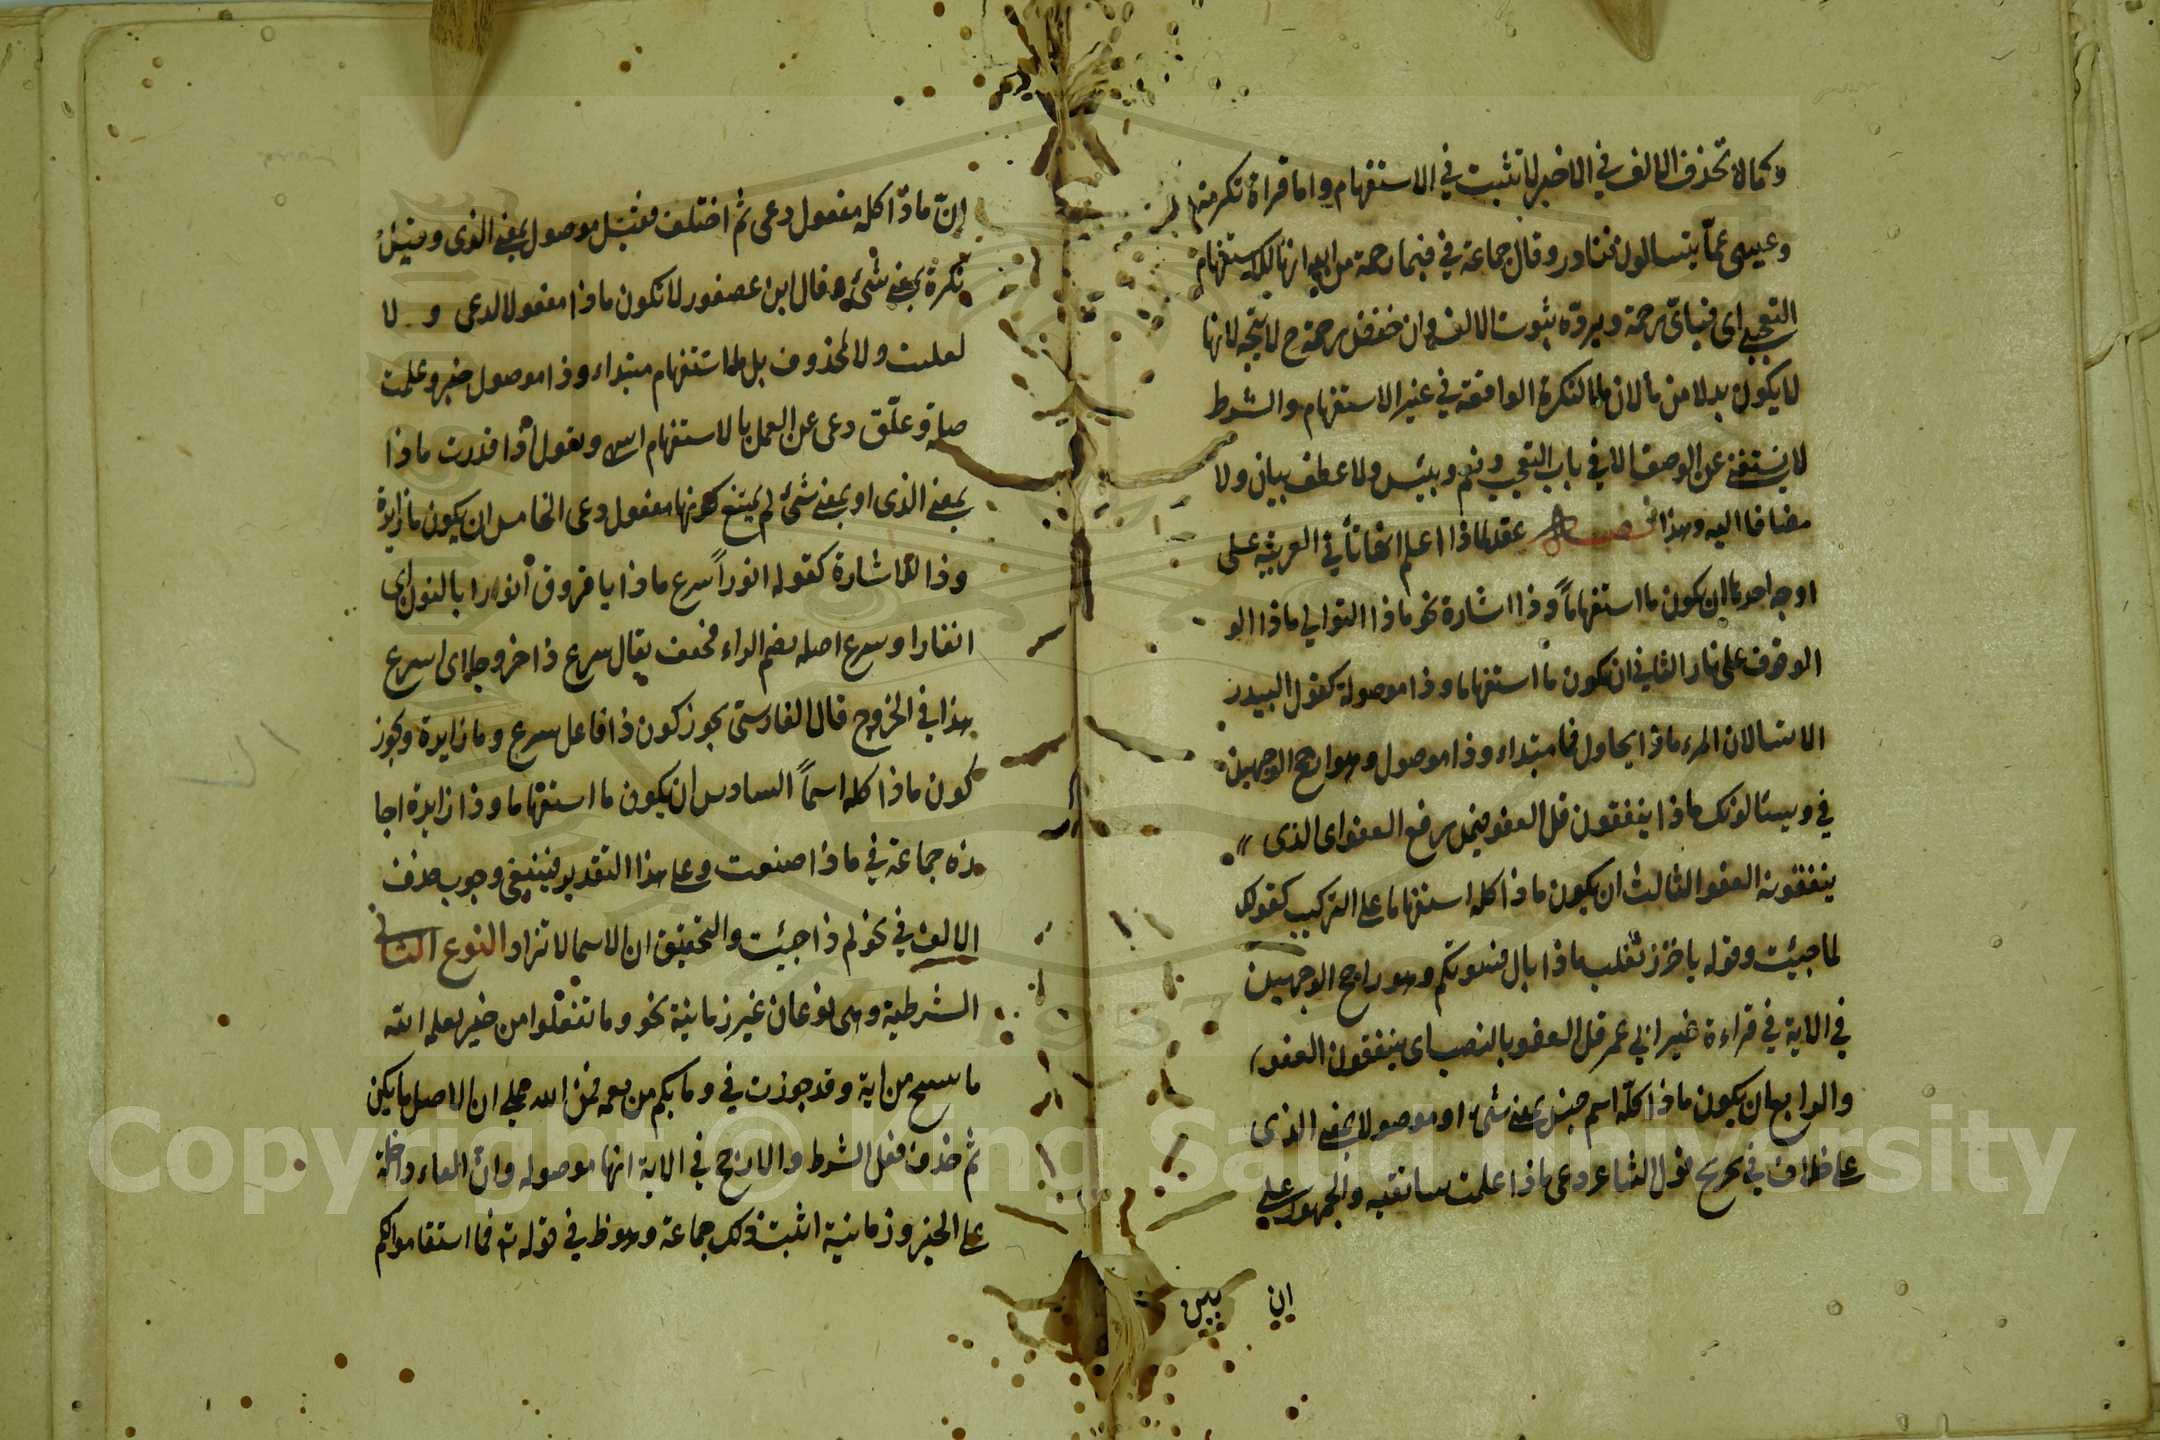 وكما لا تحذف الالف في الخبر لا تثبت في الاستفهام واما قراة عكرمة
وعيسى عمّا يتسالون فنادر وقال جماعة في فبما رحمة من الله انها للاستفهام
التعجبي اى فباىّ رحمة ويردّه ثبوت الالف وان خفض رحمة ح لا يتجه لانها
لا يكون بدلا من ما لان ما النكرة الواقعة في غير الاستفهام والشرط
لا يستغنى عن الوصف الا في باب التعجب ونعم وبئس ولا عطف بيان ولا
مضافا اليه وهذا فصل عقد لماذا اعلم انها تأتي في العربية على
اوجه احدها ان يكون ما استفهاماً وذا اشارة نحو ماذا التواني ماذا الو
الوقوف على نار الثاني ان يكون ما استفهاما وذا موصولة كقول لبيد
الا تسالان المرء ماذا يحاول فما مبتداء وذا موصول وهو ارجح الوجهين
في ويسئالونك ماذا ينفقون قل العفو فيمن رفع العفو اى الذى
ينفقونه العفو الثالث ان يكون ماذا كله استفهاما على التركيب كقولك
لماذا جيئت وقوله يا خزر تغلب ماذا بال نسوتكم وهو راجح الوجهين
في الاية في قراءة غير ابي عمر قل العفو بالنصب اى ينفقون العفو
والرابع ان يكون ماذا كلّه اسم جنس بمعنى شئ او موصولا بمعنى الذى
على خلاف في تخريج قول الشاعر دعى ماذا علمت ساتقيه والجمهور على
ان
إنّ ماذا كله مفعول دعى ثم اختلف فقيل موصول بمعنى الذى وقيل
نكرة بمعنى شئ وقال ابن عصفور لا تكون ماذا مفعولا لدعى و لا
لعلمت ولا لمحذوف بل ما استفهام مبتداء وذا موصول خبر وعلمت
صلة وعلّق دعى عن العمل بالاستفهام انتهى ونقول اذا قدرت ماذا
بمعنى الذى او بمعنى شئ لم يمتنع كونها مفعول دعى الخامس ان يكون ما زايدة
وذا للاشارة كقوله انوراً سرع ماذا يا فروق أنورا بالنون اى
انفارا وسرع اصله بضم الراء فخفف يقال سرع ذا خروجا اى اسرع
هذا في الخروج قال الفارسى يجوز كون ذا فاعل سرع وما زايدة ويجوز
كون ماذا كله اسماً السادس ان يكون ما استفهاما وذا زايدة اجا
زه جماعة في ماذا صنعت وعلى هذا التقدير فينبغى وجوب حذف
الالف في نحو لم ذا جيئت والتحقيق ان الاسما لا تزاد النوع الثانى
الشرطية وهى نوعان غير زمانية نحو وما تفعلوا من خير يعلمه الله
ما ننسخ من اية وقد جوزت في وما بكم من نعمة فمن الله على ان الاصل ما يكن
ثم حذف فعل الشرط والارجح في الاية انها موصوله وانّ الفاء داخلة
على الخبر وزمانية اثبت ذلك جماعة وهو ظ في قوله تع فما استقاموا لكم
Copyright © King Saud University
1957